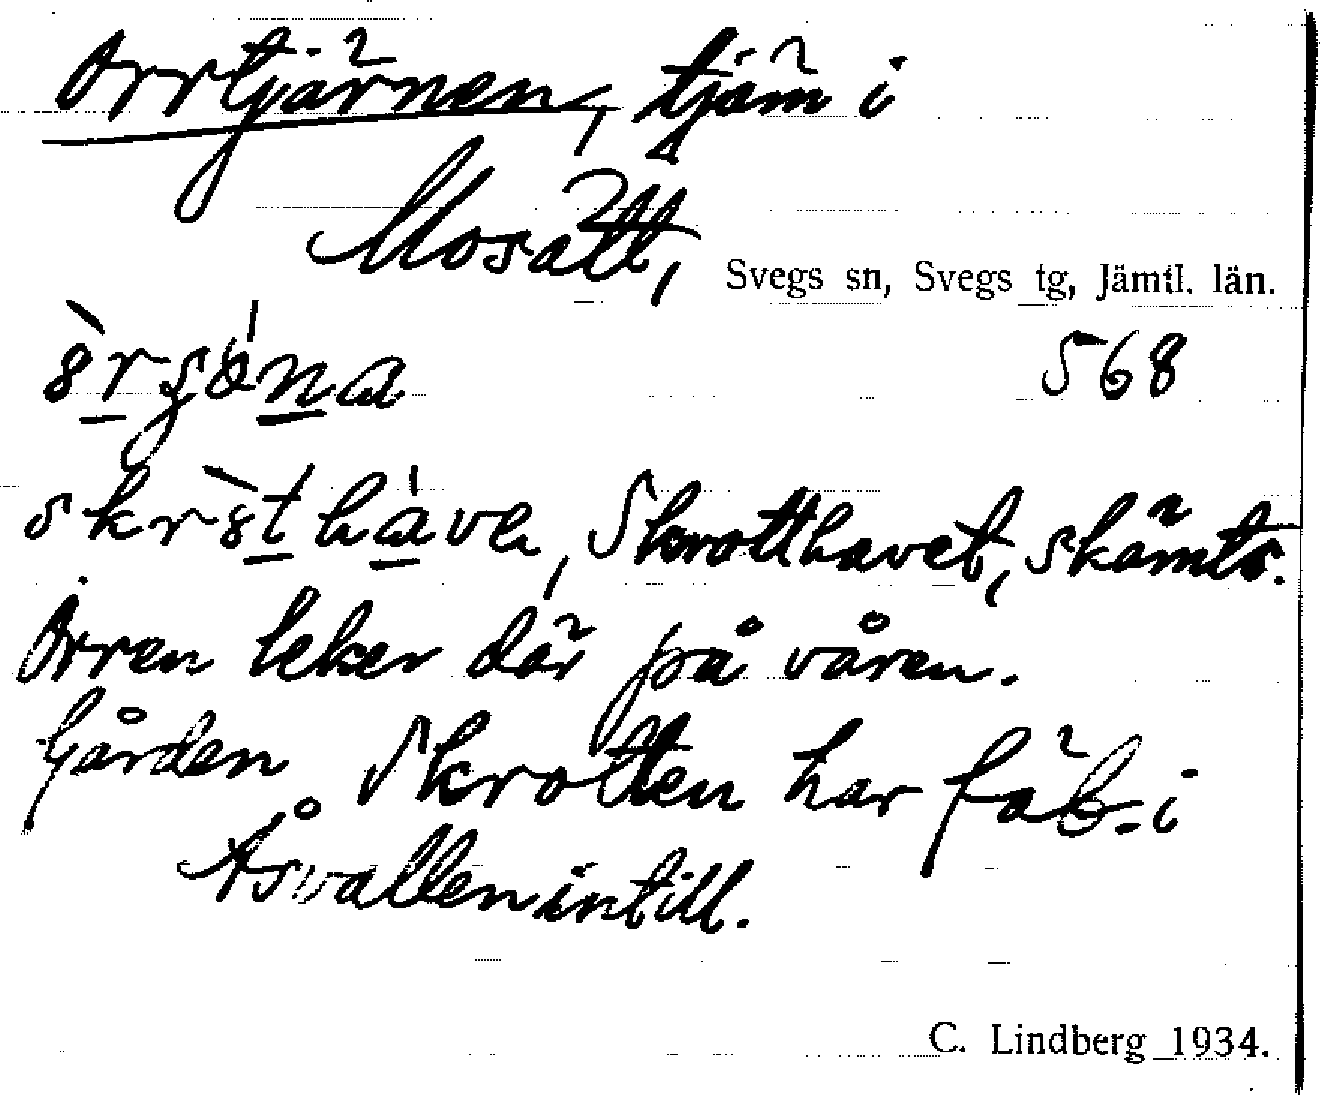 Orrtjärnen, tjärn i
Mosätt, Svegs sn, Svegs tg, Jämtl. län.
568
Skrotthavet, skämts.
Orren leker där på våren.
Gården Skrotten har fäb. i
Åsvallen intill.
C. Lindberg 1934.